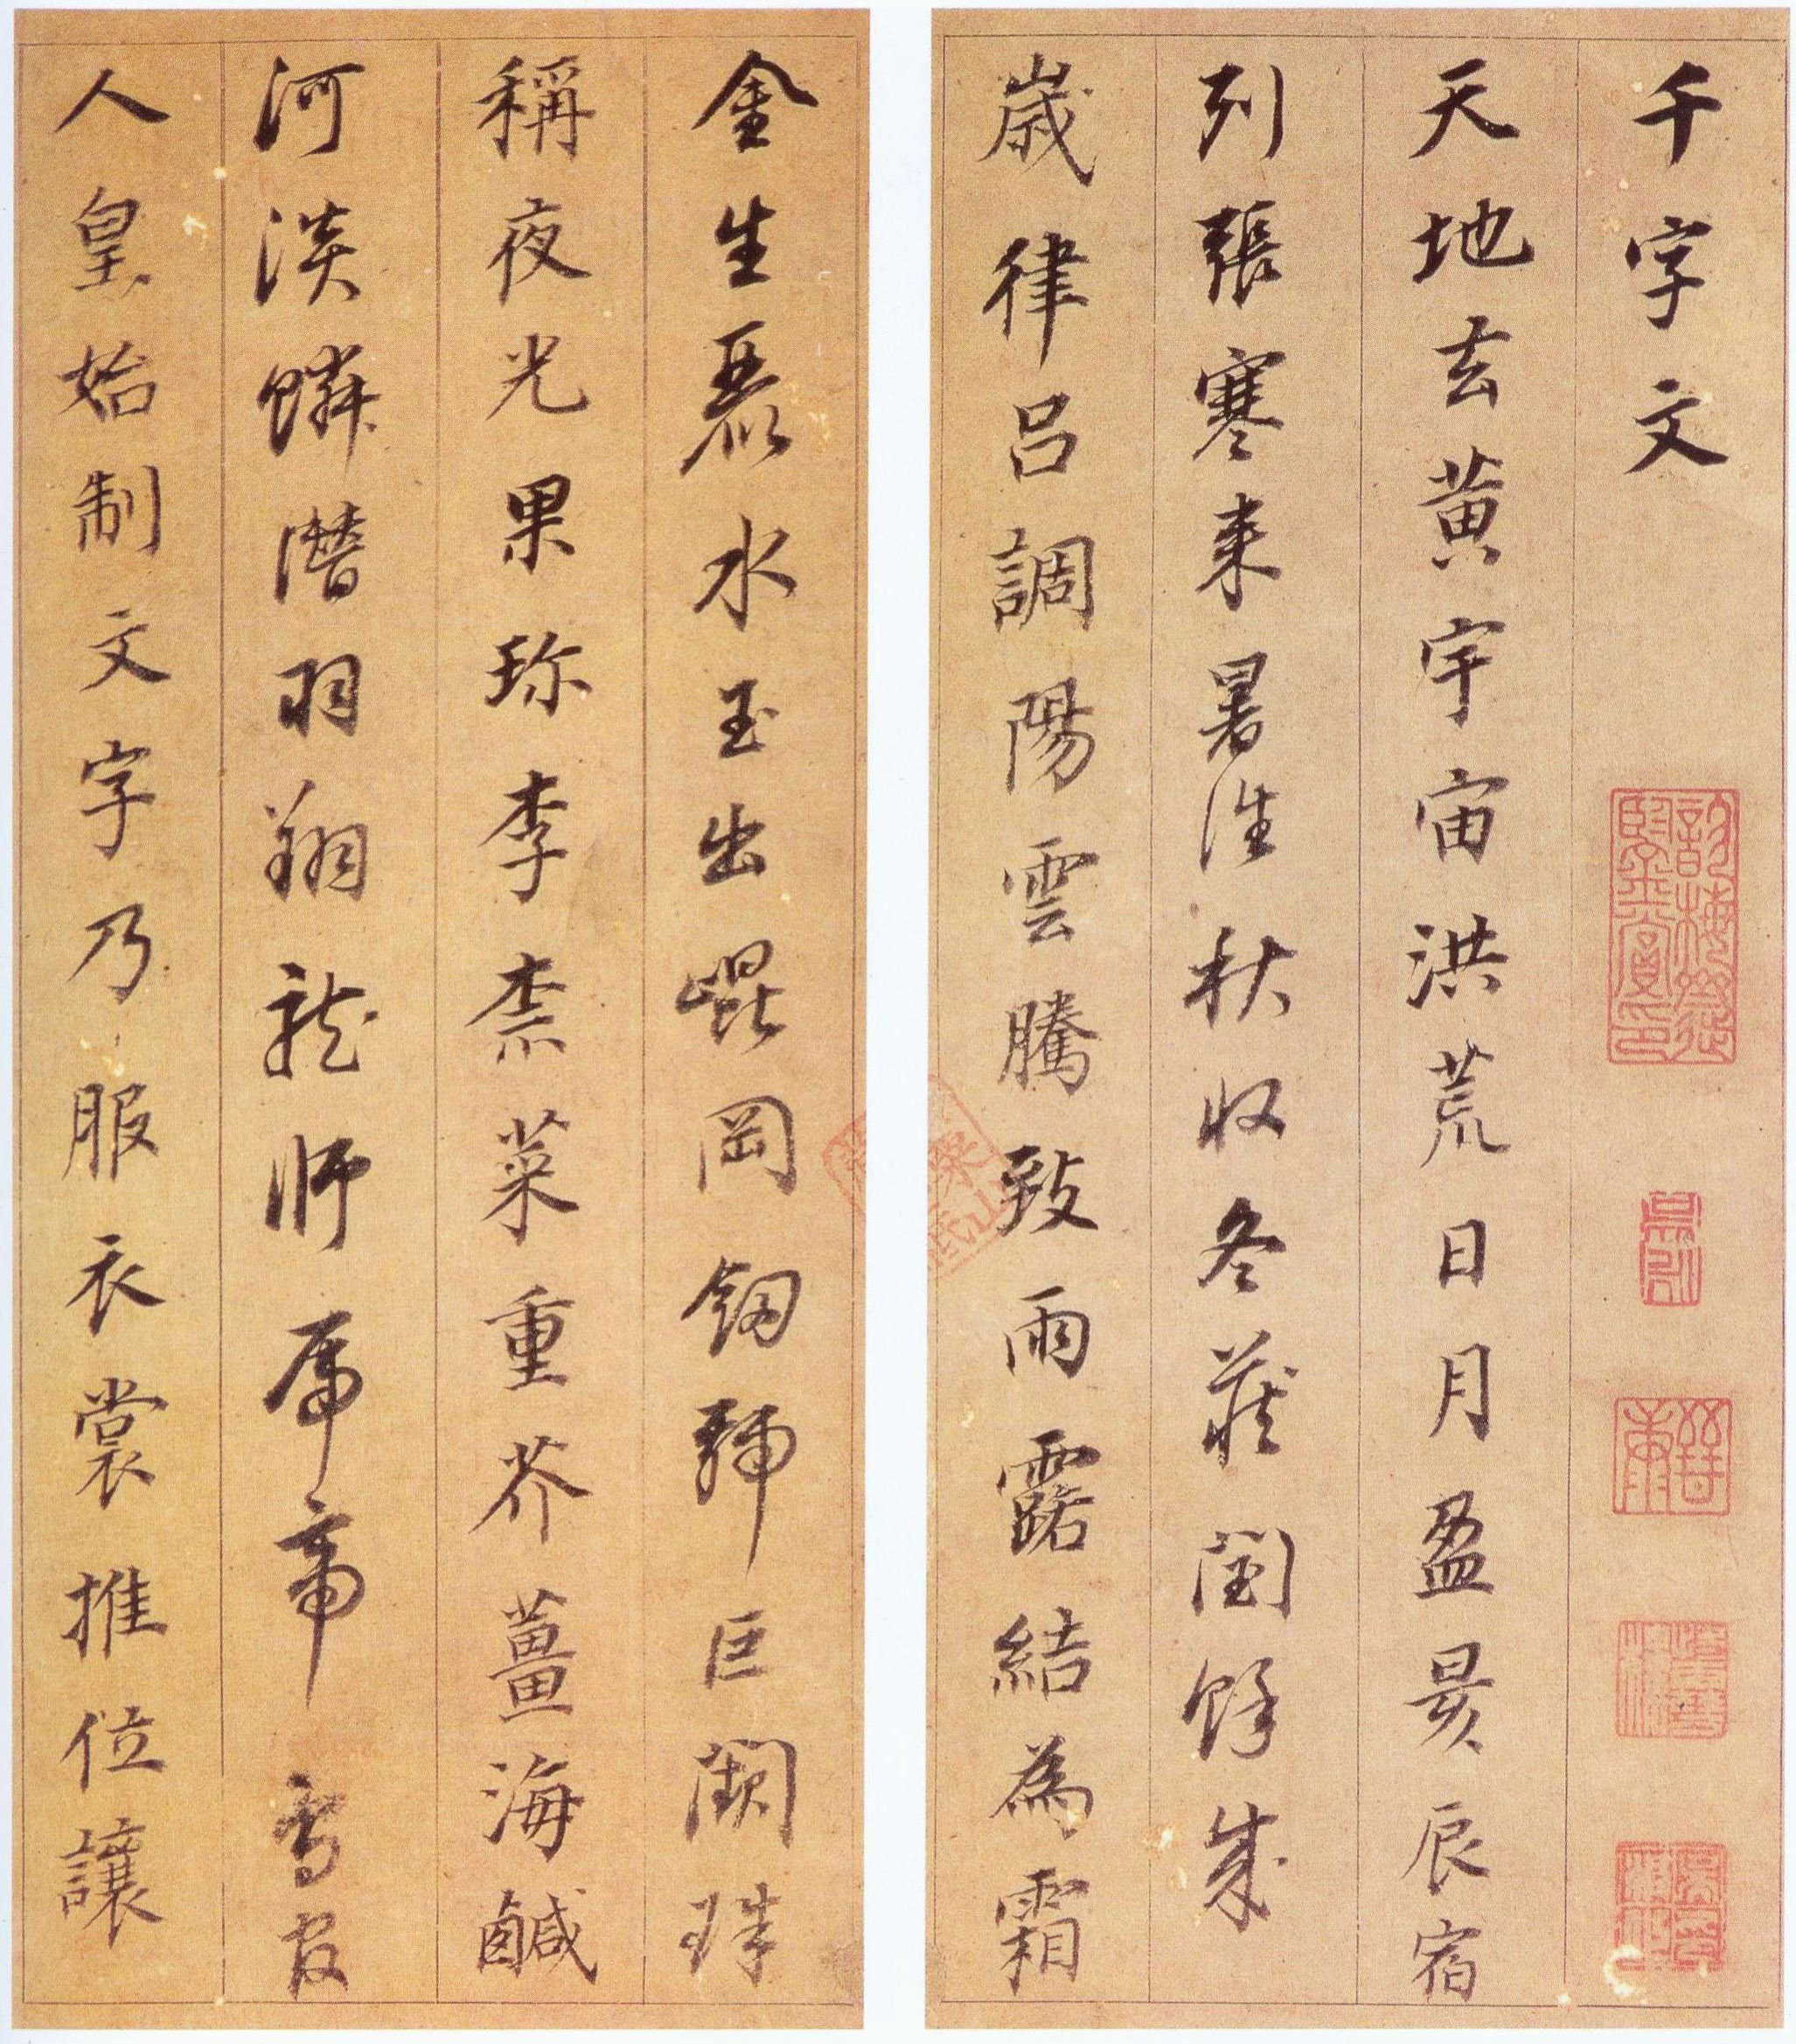 千字文
天地玄黄宇宙洪荒日月盈昃辰宿
列張寒来暑往秋收冬藏閏餘成
歳律吕調陽雲騰致雨露結為霜
金生麗水玉出崐岡劒號巨闕珠
稱夜光果珎李柰菜重芥薑海鹹
河淡鱗潛羽翔龍師帝鳥官
人皇始制文字乃服衣裳推位讓